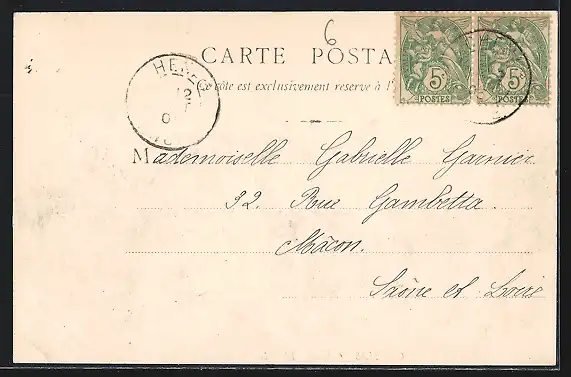 6
CARTE POSTA
Ce côte est exclusivement reserve à l'
5c 5c
POSTES POSTES
12
Mademoiselle Gabrielle Garnier
32. Rue Gambetta.
Mâcon.
Saône et Loire